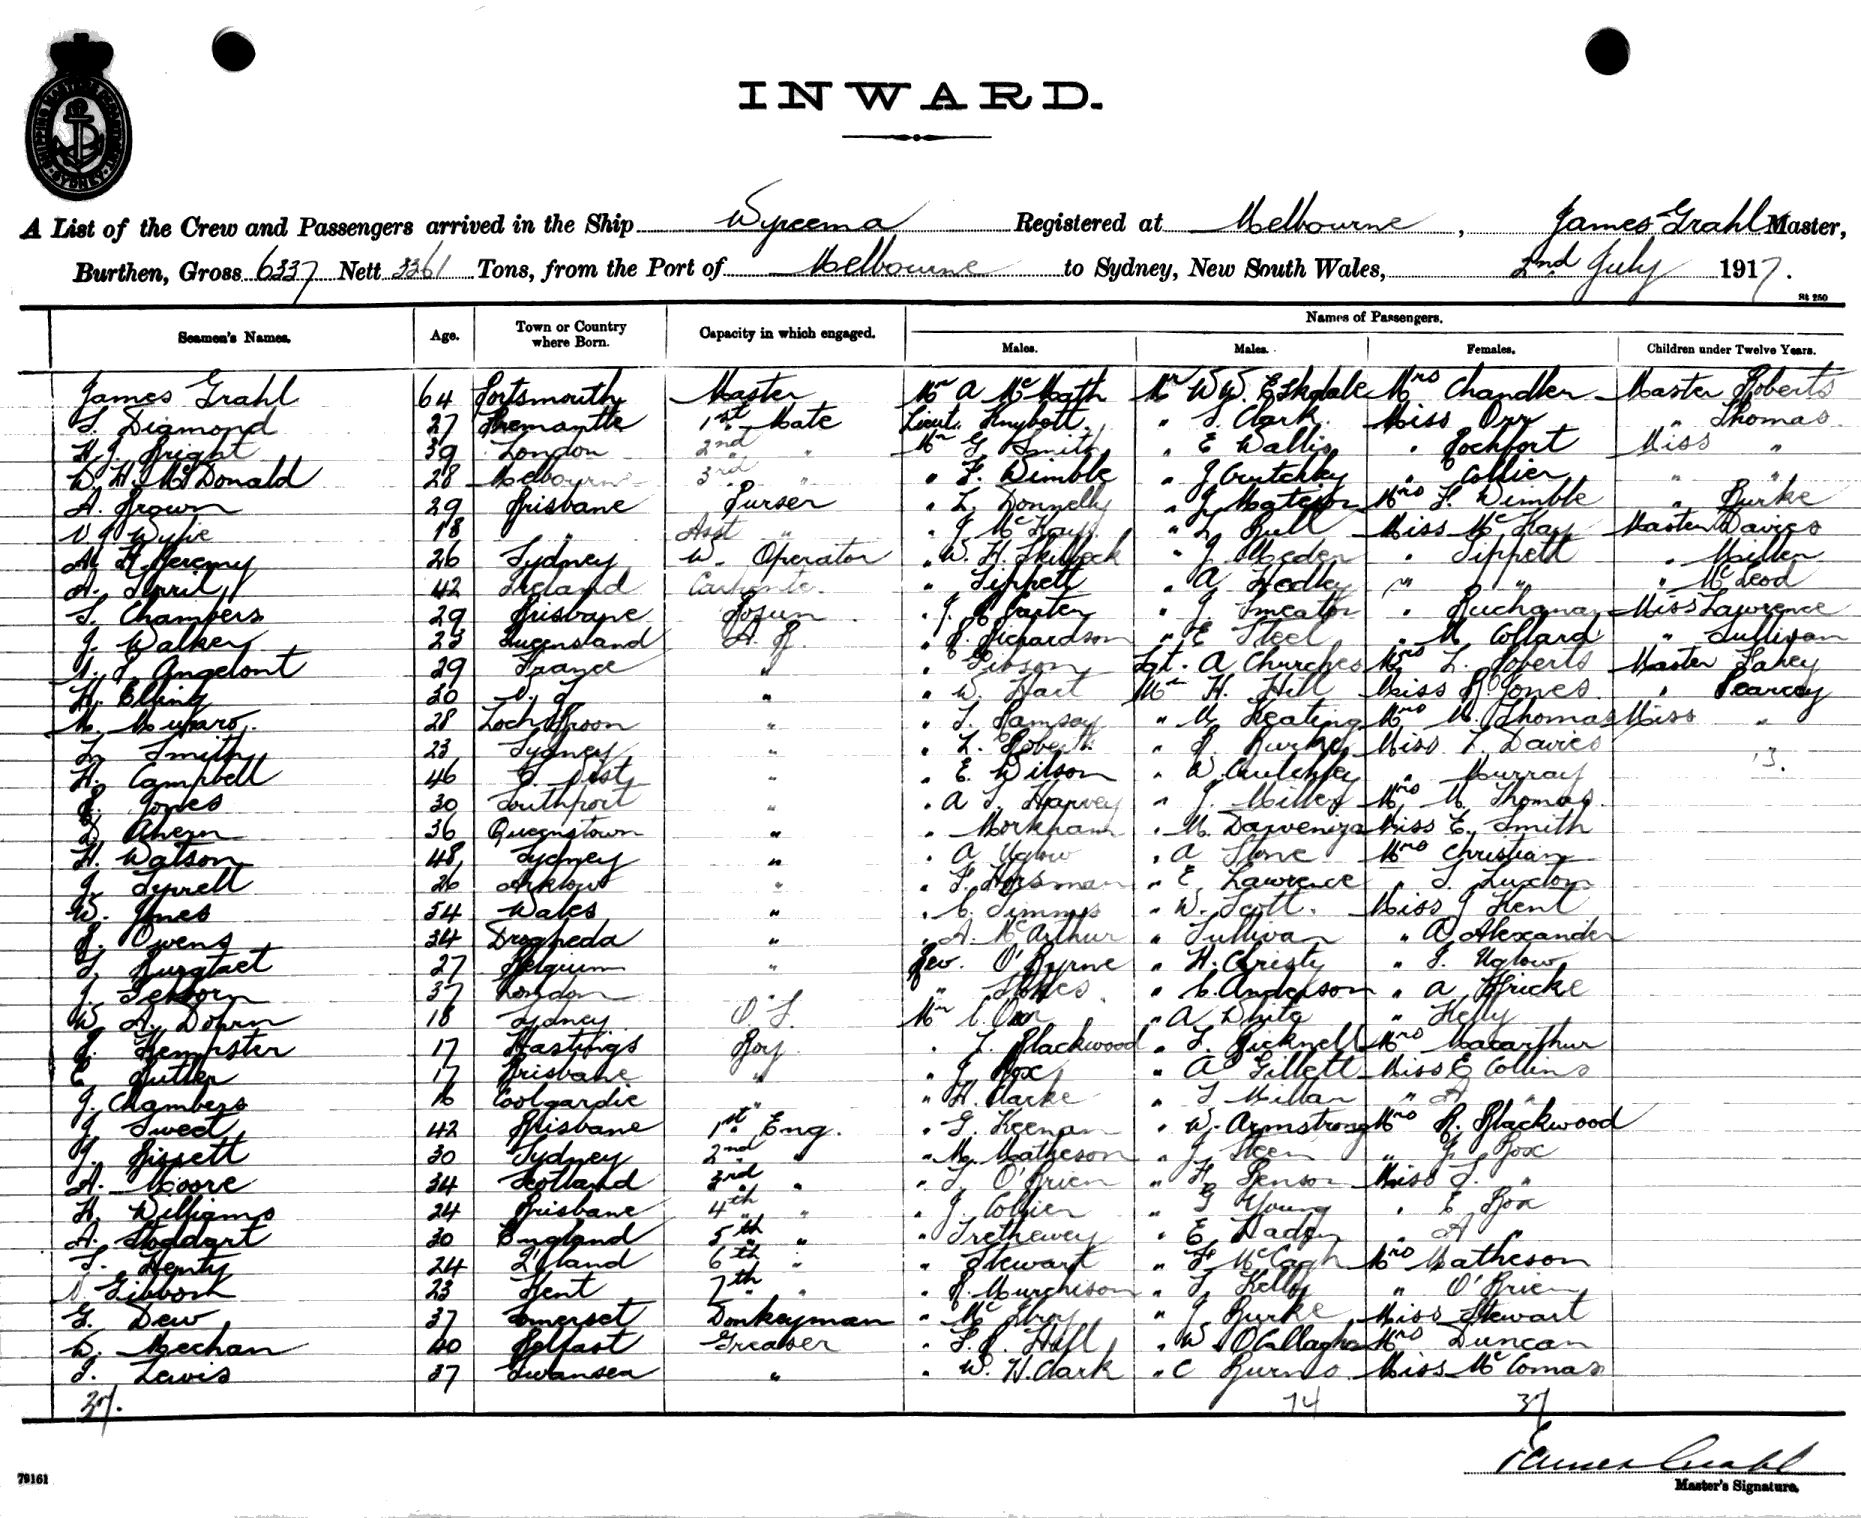 SHIPPING MASTER'S DEPARTMENT SYDNEY
INWARD.
A List of the Crew and Passengers arrived in the Ship Wyreema Registered at Melbourne, James Grahl Master,
Burthen, Gross 6337 Nett 3361 Tons, from the Port of Melbourne to Sydney, New South Wales, 2nd July 1917.
St 250
Names of Passengers.
Seamen's Names. Age. Town or Country where Born. Capacity in which engaged. Males. Males. Females. Children under Twelve Years.
James Grahl 64 Portsmouth Master Mr A McMath Mr W W. Eskdale Mrs Chandler Master Roberts
Diamond 27 Fremantle 1st Mate Lieut. " Clark Miss Orr " Thomas
H. J. Bright 39 London 2nd " Mr G Smith " E Wallis " Rochfort Miss "
W. H. McDonald 28 Melbourne 3rd " " F. Wimble " J Crutchley " Collier " "
A. Brown 29 Brisbane Purser " L. Donnelly " J Mateson Mrs F. Wimble " Burke
Wylie 18 " Asst " " J McKay " L Bull Miss McKay Master Davies
H. Jeremy 26 Sydney W. Operator " W. H. " J " Tippett " Miller
A. 42 Ireland Carpenter " Tippett " A Hedley " " " McLeod
Chambers 29 Brisbane Bosun " J. Carter " J Smeaton " Buchanan Miss Lawrence
J. Walker 23 Queensland A. B. " R. Richardson " E Steel " M Collard " Sullivan
Angelont 29 France " " Gibson Lgt. A Churches Mrs L. Roberts Master Fahey
H. Elling 30 " " W. Hart Mr H. Hill Miss R. Jones " Pearcey
M. Munro 28 Loch Broon " " Ramsay " M Keating Mrs M. Thomas Miss "
L. Smith 23 Sydney " " L. Roberts " Burke Miss L Davies
H. Campbell 46 " " E. Wilson " W Crutchley " Murray 13.
R. Jones 30 Southport " " A Harvey " J. Miller Mrs M Thomas
D. Ahern 36 Queenstown " " Morkham " M. Darveniza Miss E. Smith
H. Watson 48 Sydney " " A Uglow " A Stone Mrs Christian
J. Tyrrell 26 Arklow " " F. Horsman " E Lawrence " Luxton
W. Jones 54 Wales " " C. Timms " W. Scott Miss J Kent
R. Owens 34 Drogheda " " A. McArthur " Sullivan " A Alexander
27 Belgium " Rev. O'Byrne " H. Christy " Uglow
J. 37 London " " Stokes " C. Anderson " A Fricke
W. A. Dohrn 18 Sydney O. S. Mr C. Orr " A White " Kelly
Kempster 17 Hastings Boy " Blackwood " Bicknell Mrs Macarthur
E. Butler 17 Brisbane " " J Box " A Gillett Miss E Collins
J. Chambers 16 Coolgardie " " H. Clarke " Millar " A "
J. Sweet 42 Brisbane 1st Eng. " G. Keenan " W. Armstrong Mrs R. Blackwood
J. Bissett 30 Sydney 2nd " " M. Matheson " J " G Box
A. Moore 34 Scotland 3rd " " O'Brien " H Benson Miss "
H. Williams 24 Brisbane 4th " " J. Collier " G Young " E Box
A. Stoddart 30 England 5th " " Trethewey " E. " A "
Henty 24 6th " " Stewart " Mrs Matheson
Gibbon 23 Kent 7th " " R. Murchison " Kelly " O'Brien
G. Dew 37 Somerset Donkeyman " " J Burke Miss Stewart
W. Meehan 40 Belfast Greaser " Hall " W. O'Callaghan Mrs Duncan
Lewis 37 Swansea " " W. H. Clark " C Burns Miss McComas
37. 74 37
James Grahl
Master's Signature.
79161